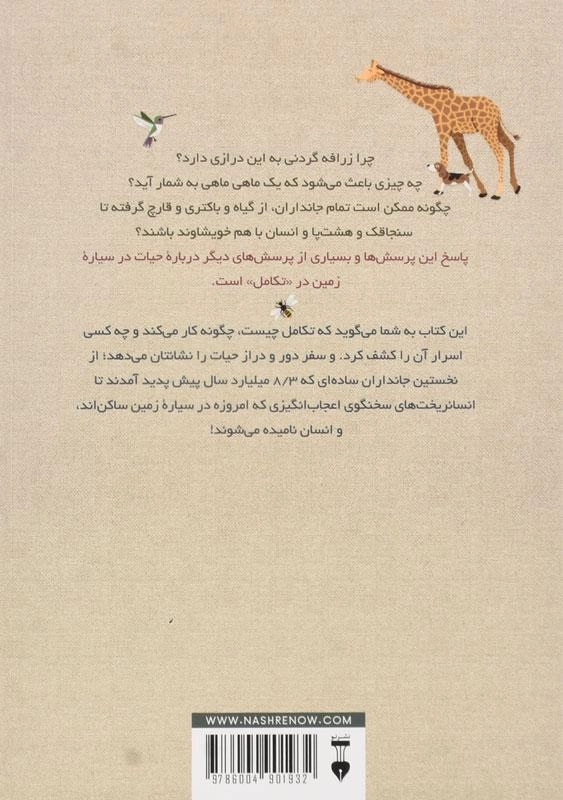 چرا زرافه گردنی به این درازی دارد؟
چه چیزی باعث می‌شود که یک ماهی ماهی به شمار آید؟
چگونه ممکن است تمام جانداران، از گیاه و باکتری و قارچ گرفته تا
سنجاقک و هشت‌پا و انسان با هم خویشاوند باشند؟
پاسخ این پرسش‌ها و بسیاری از پرسش‌های دیگر دربارهٔ حیات در سیارهٔ
زمین در «تکامل» است.
این کتاب به شما می‌گوید که تکامل چیست، چگونه کار می‌کند و چه کسی
اسرار آن را کشف کرد. و سفر دور و دراز حیات را نشانتان می‌دهد؛ از
نخستین جانداران ساده‌ای که ۸/۳ میلیارد سال پیش پدید آمدند تا
انسانریخت‌های سخنگوی اعجاب‌انگیزی که امروزه در سیارهٔ زمین ساکن‌اند،
و انسان نامیده می‌شوند!
WWW.NASHRENOW.COM
نشر نو
9786004901932